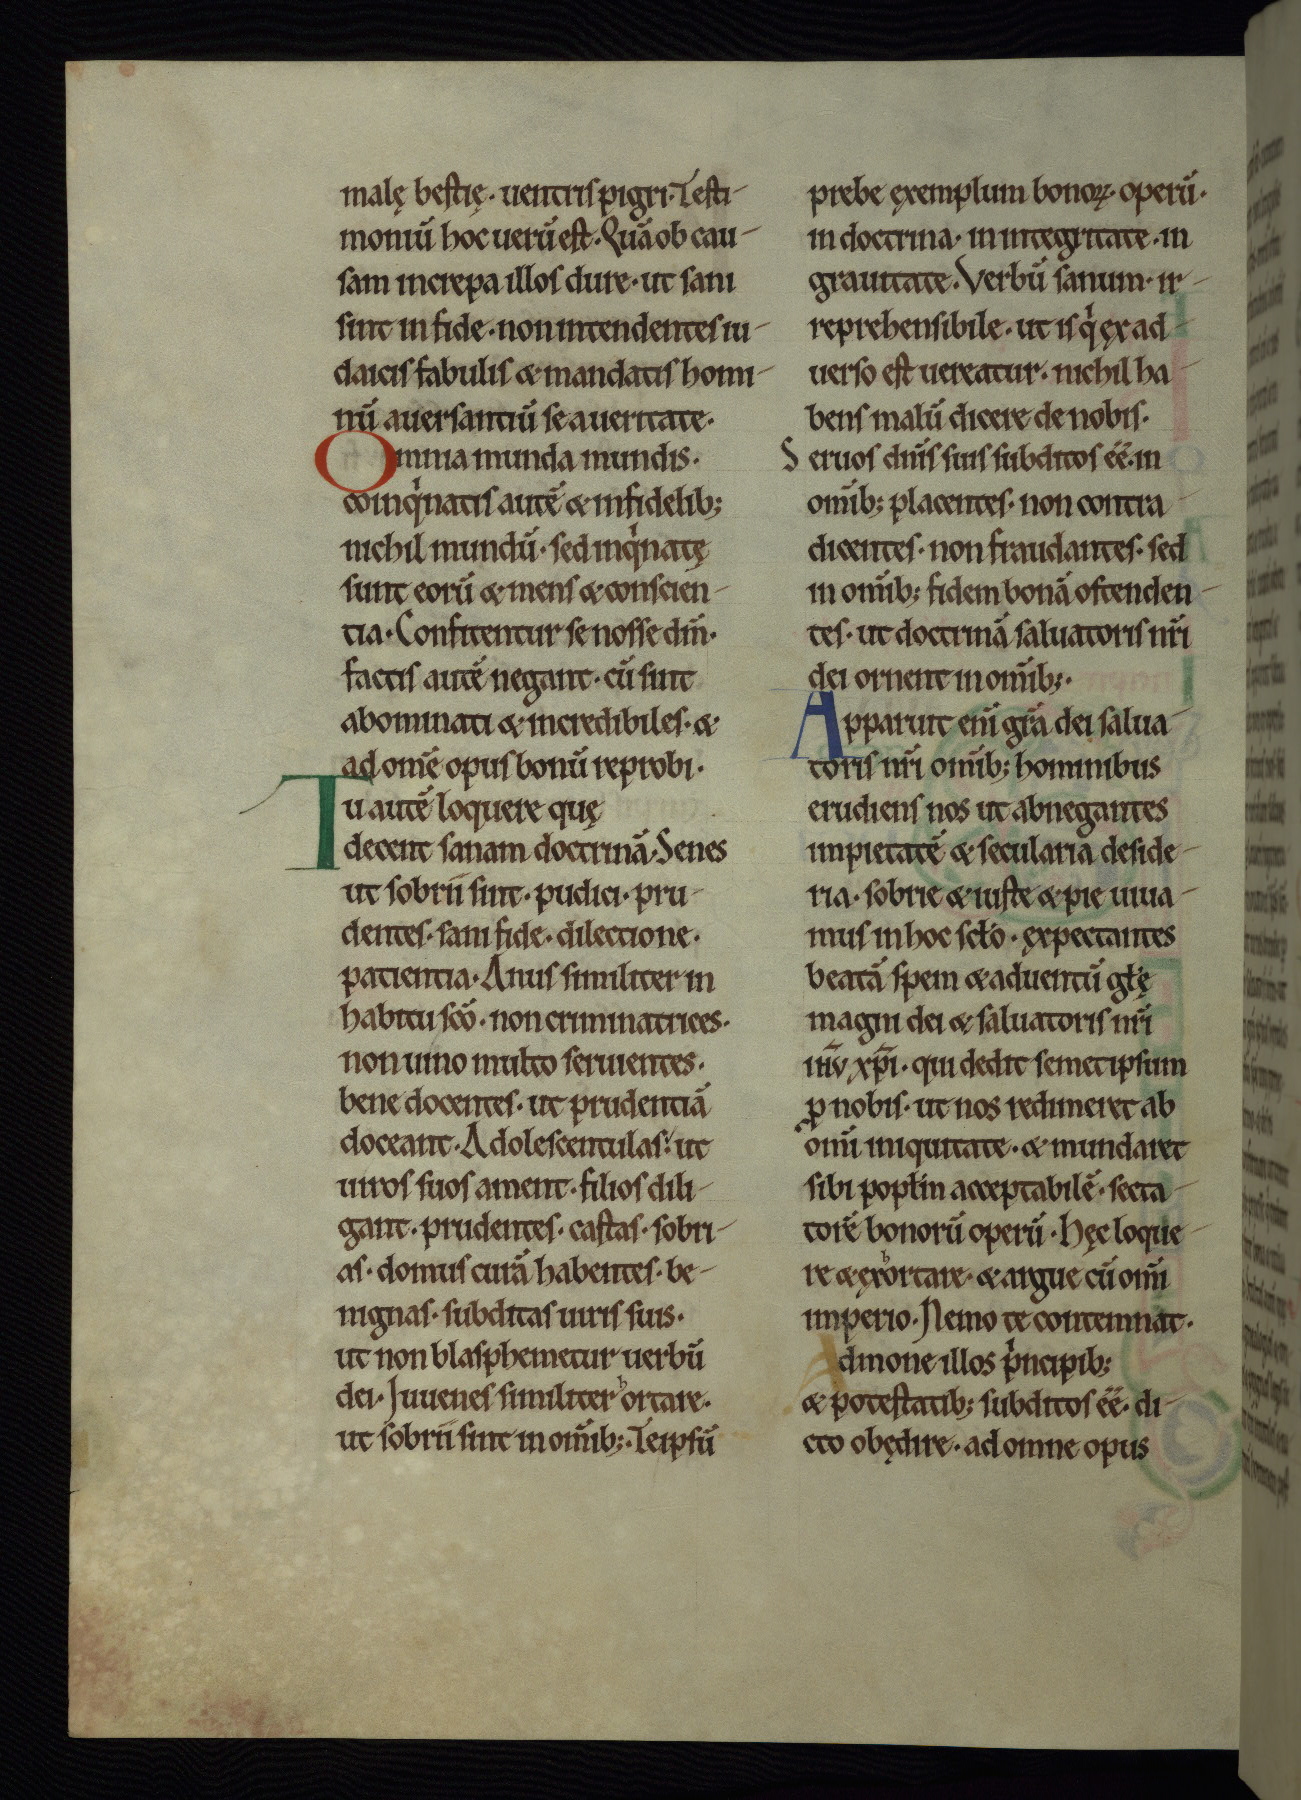 malę bestię· uentris pigri· Testi-
moniū hoc uerū est· Quā ob cau-
sam increpa illos dure· ut sani
sint in fide· non intendentes iu-
daicis fabulis & mandatis homi-
nū auersantiū se a ueritate·
Omnia munda mundis·
coinq̍natis autē & infidelib;
nichil mundū· sed inq̍natę
sunt eorū & mens & conscien-
tia· Confitentur se nosse dm̄·
factis autē negant· cū sint
abominati & incredibiles· &
ad omē opus bonū reprobi·
Tu autē loquere quę
decent sanam doctrinā· Senes
ut sobrii sint· pudici· pru-
dentes· sani fide· dilectione·
patientia· Anus similiter in
habitu scō· non criminatrices·
non uino multo seruientes·
bene docentes· ut prudentiā
doceant· Adolescentulas· ut
uiros suos ament· filios dili-
gant· prudentes· castas· sobri-
as· domus curā habentes· be-
nignas· subditas uiris suis·
ut non blasphemetur uerbū
dei· Iuuenes similiter ʰortare·
ut sobrii sint in om̄ib;· Teipsū
prebe ęxemplum bonoꝝ· operū·
in doctrina· in integritate· in
grauitate· Verbū sanum· ir-
reprehensibile· ut is q̍ ęx ad-
uerso est uereatur· nichil ha-
bens malū dicere de nobis·
Seruos dnīs suis subditos eē̄· in
om̄ib; placentes· non contra-
dicentes· non fraudantes· sed
in om̄ib; fidem bonā ostenden-
tes· ut doctrinā saluatoris nr̄i
dei ornent in om̄ib;·
Apparuit eni̅ gr̄a dei salua-
toris nr̄i om̄ib; hominibus
erudiens nos ut abnegantes
impietatē & secularia deside-
ria· sobrie & iuste & pie uiua-
mus in hoc scł̄o· ęxpectantes
beatā spem & aduentū gł̄ę
magni dei & saluatoris nr̄i
iħ̄v xp̄i· qui dedit semetipsum
ꝓ nobis· ut nos redimeret ab
om̄i iniquitate· & mundaret
sibi popł̄m acceptabilē· secta-
torē bonorū operū· Hęc loque-
re & ęxʰortare· & argue cū om̄i
imperio· Nemo te contemnat·
Admone illos p̍ncipib;
& potestatib; subditos eē̄· di-
cto obędire· ad omne opus